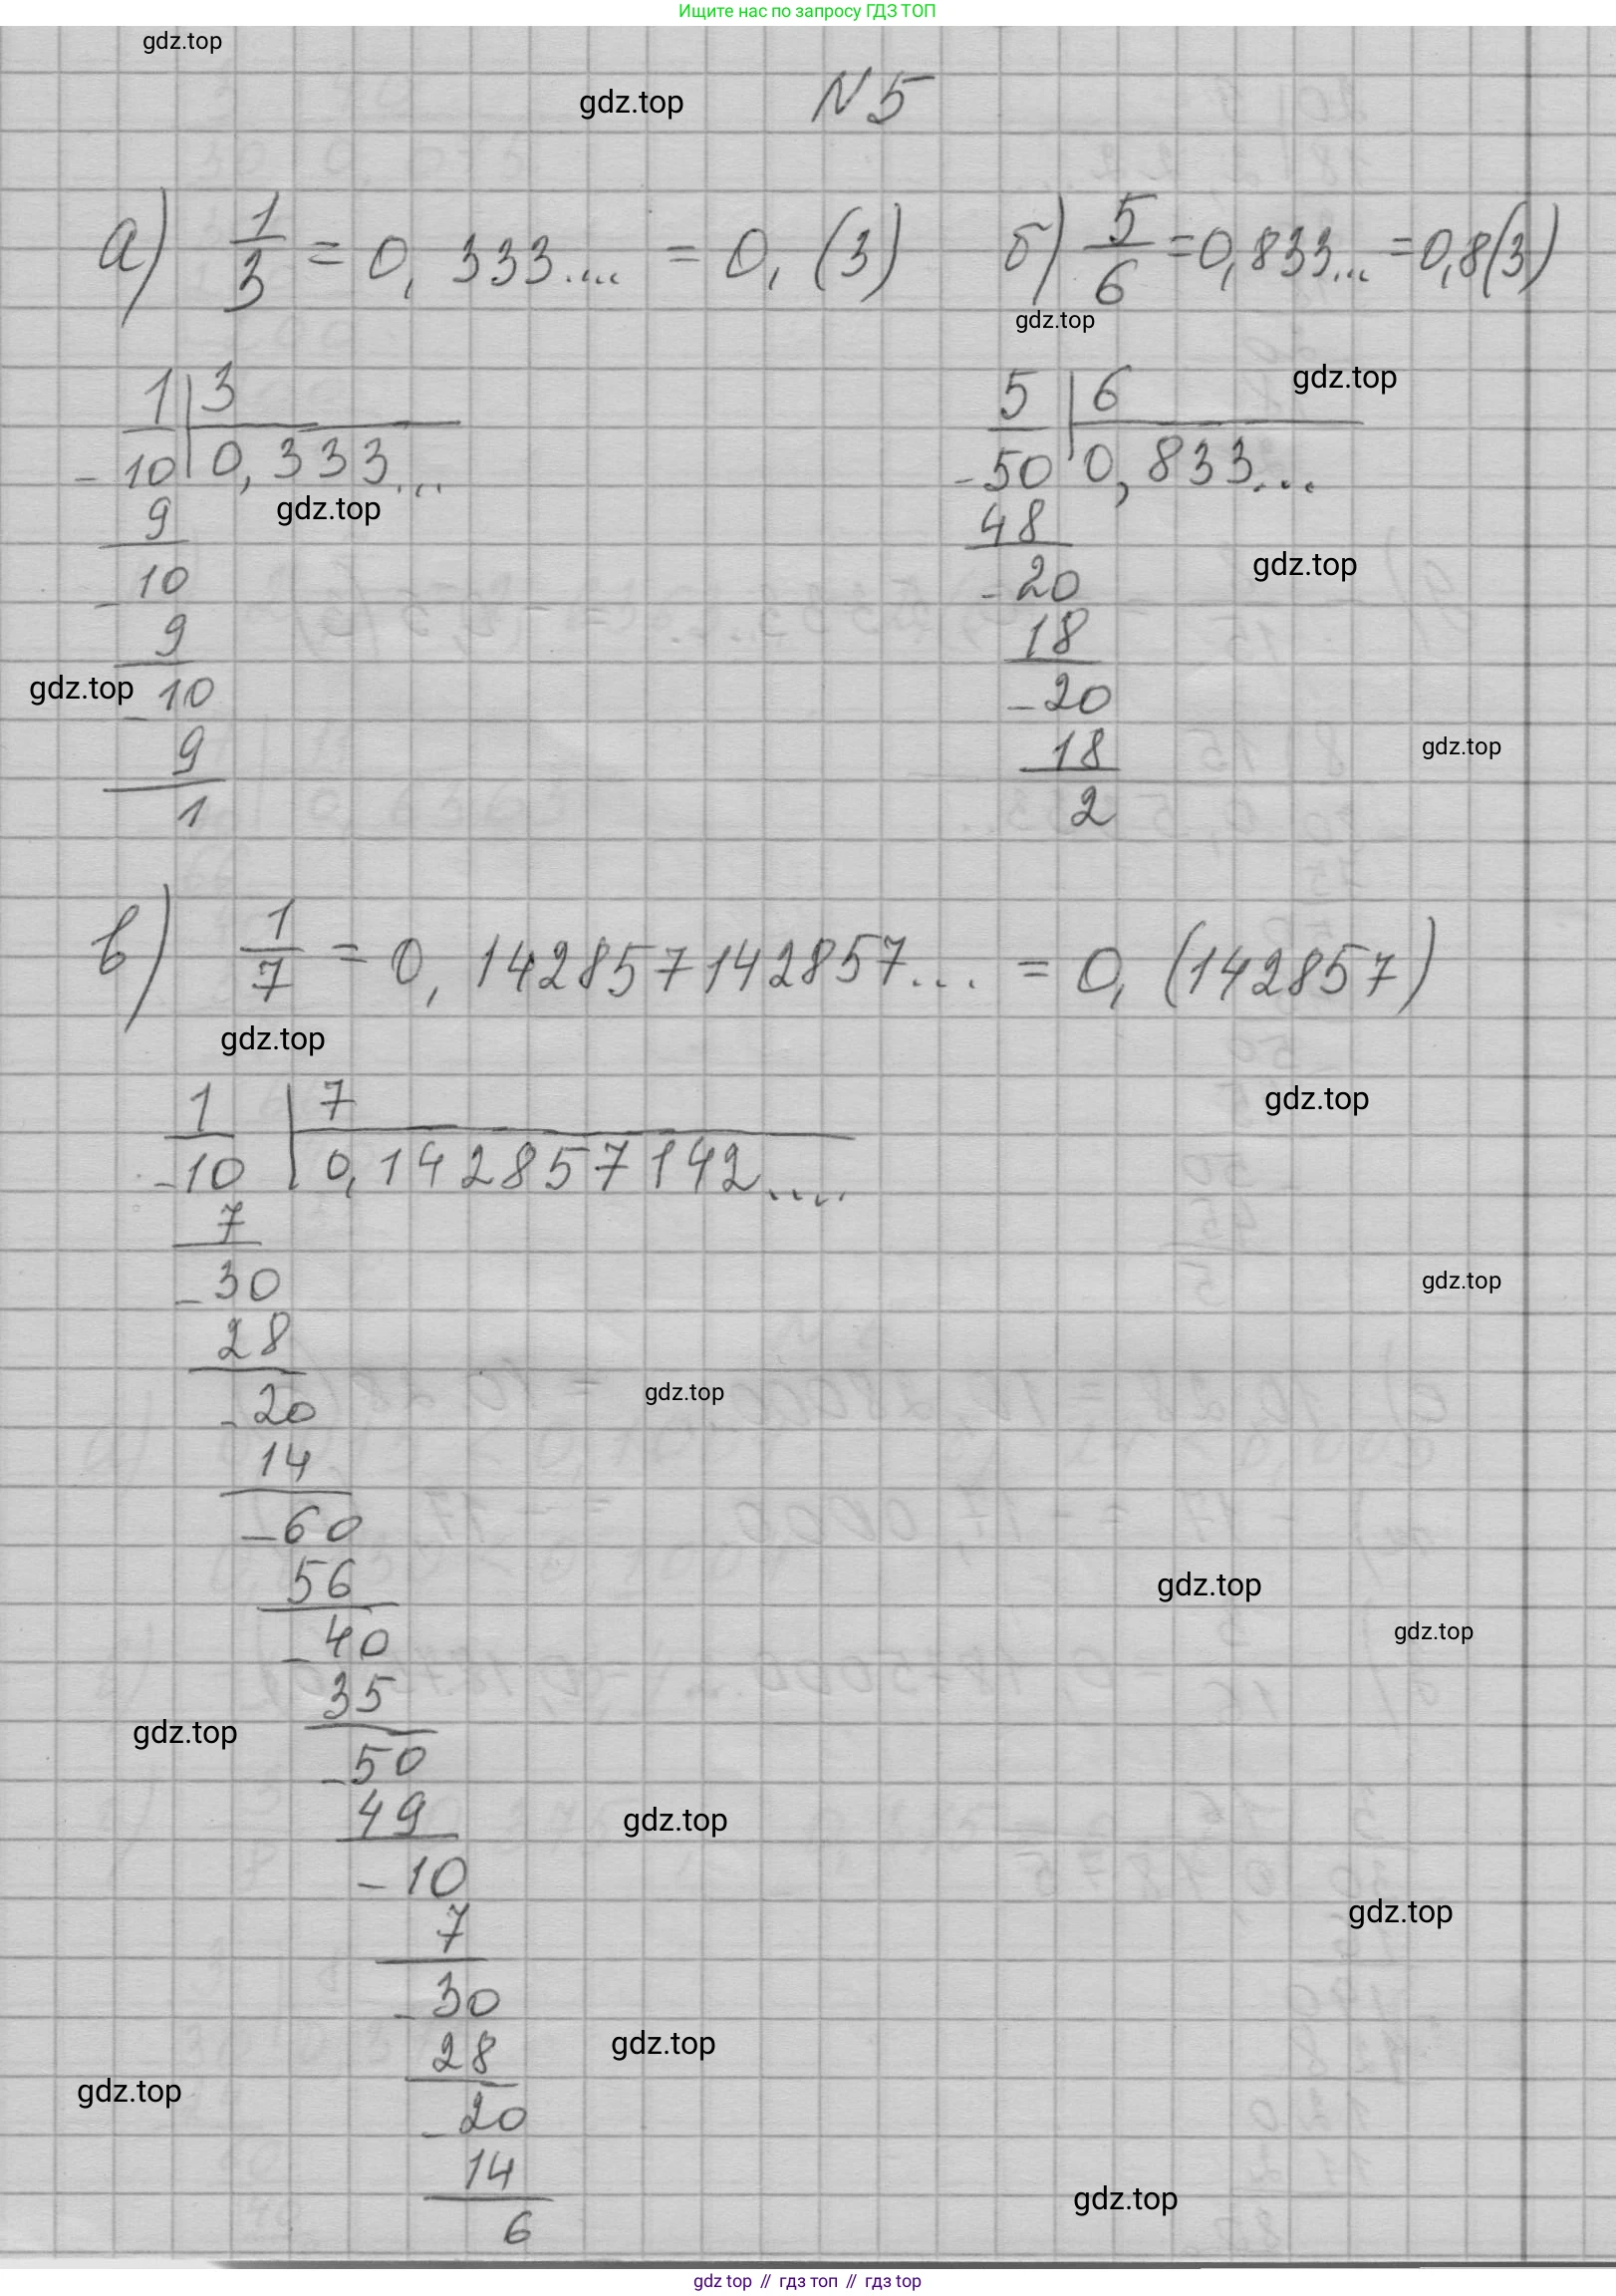 Ищите нас по запросу ГДЗ ТОП
gdz.top
gdz.top
N 5
а) 1/3 = 0, 333.... = 0, (3)
б) 5/6 = 0,833... = 0,8(3)
gdz.top
1 | 3
- 10 | 0, 333...
gdz.top
9
- 10
9
gdz.top
- 10
9
1
5 | 6
gdz.top
- 50 | 0, 833...
48
gdz.top
- 20
18
- 20
18
gdz.top
2
в) 1/7 = 0, 142857142857... = 0, (142857)
gdz.top
gdz.top
1 | 7
- 10 | 0,142857142....
7
- 30
gdz.top
28
gdz.top
- 20
14
- 60
56
gdz.top
- 40
gdz.top
35
gdz.top
- 50
49
gdz.top
- 10
7
gdz.top
- 30
28
gdz.top
gdz.top
- 20
14
gdz.top
6
gdz top // гдз топ // гдз top